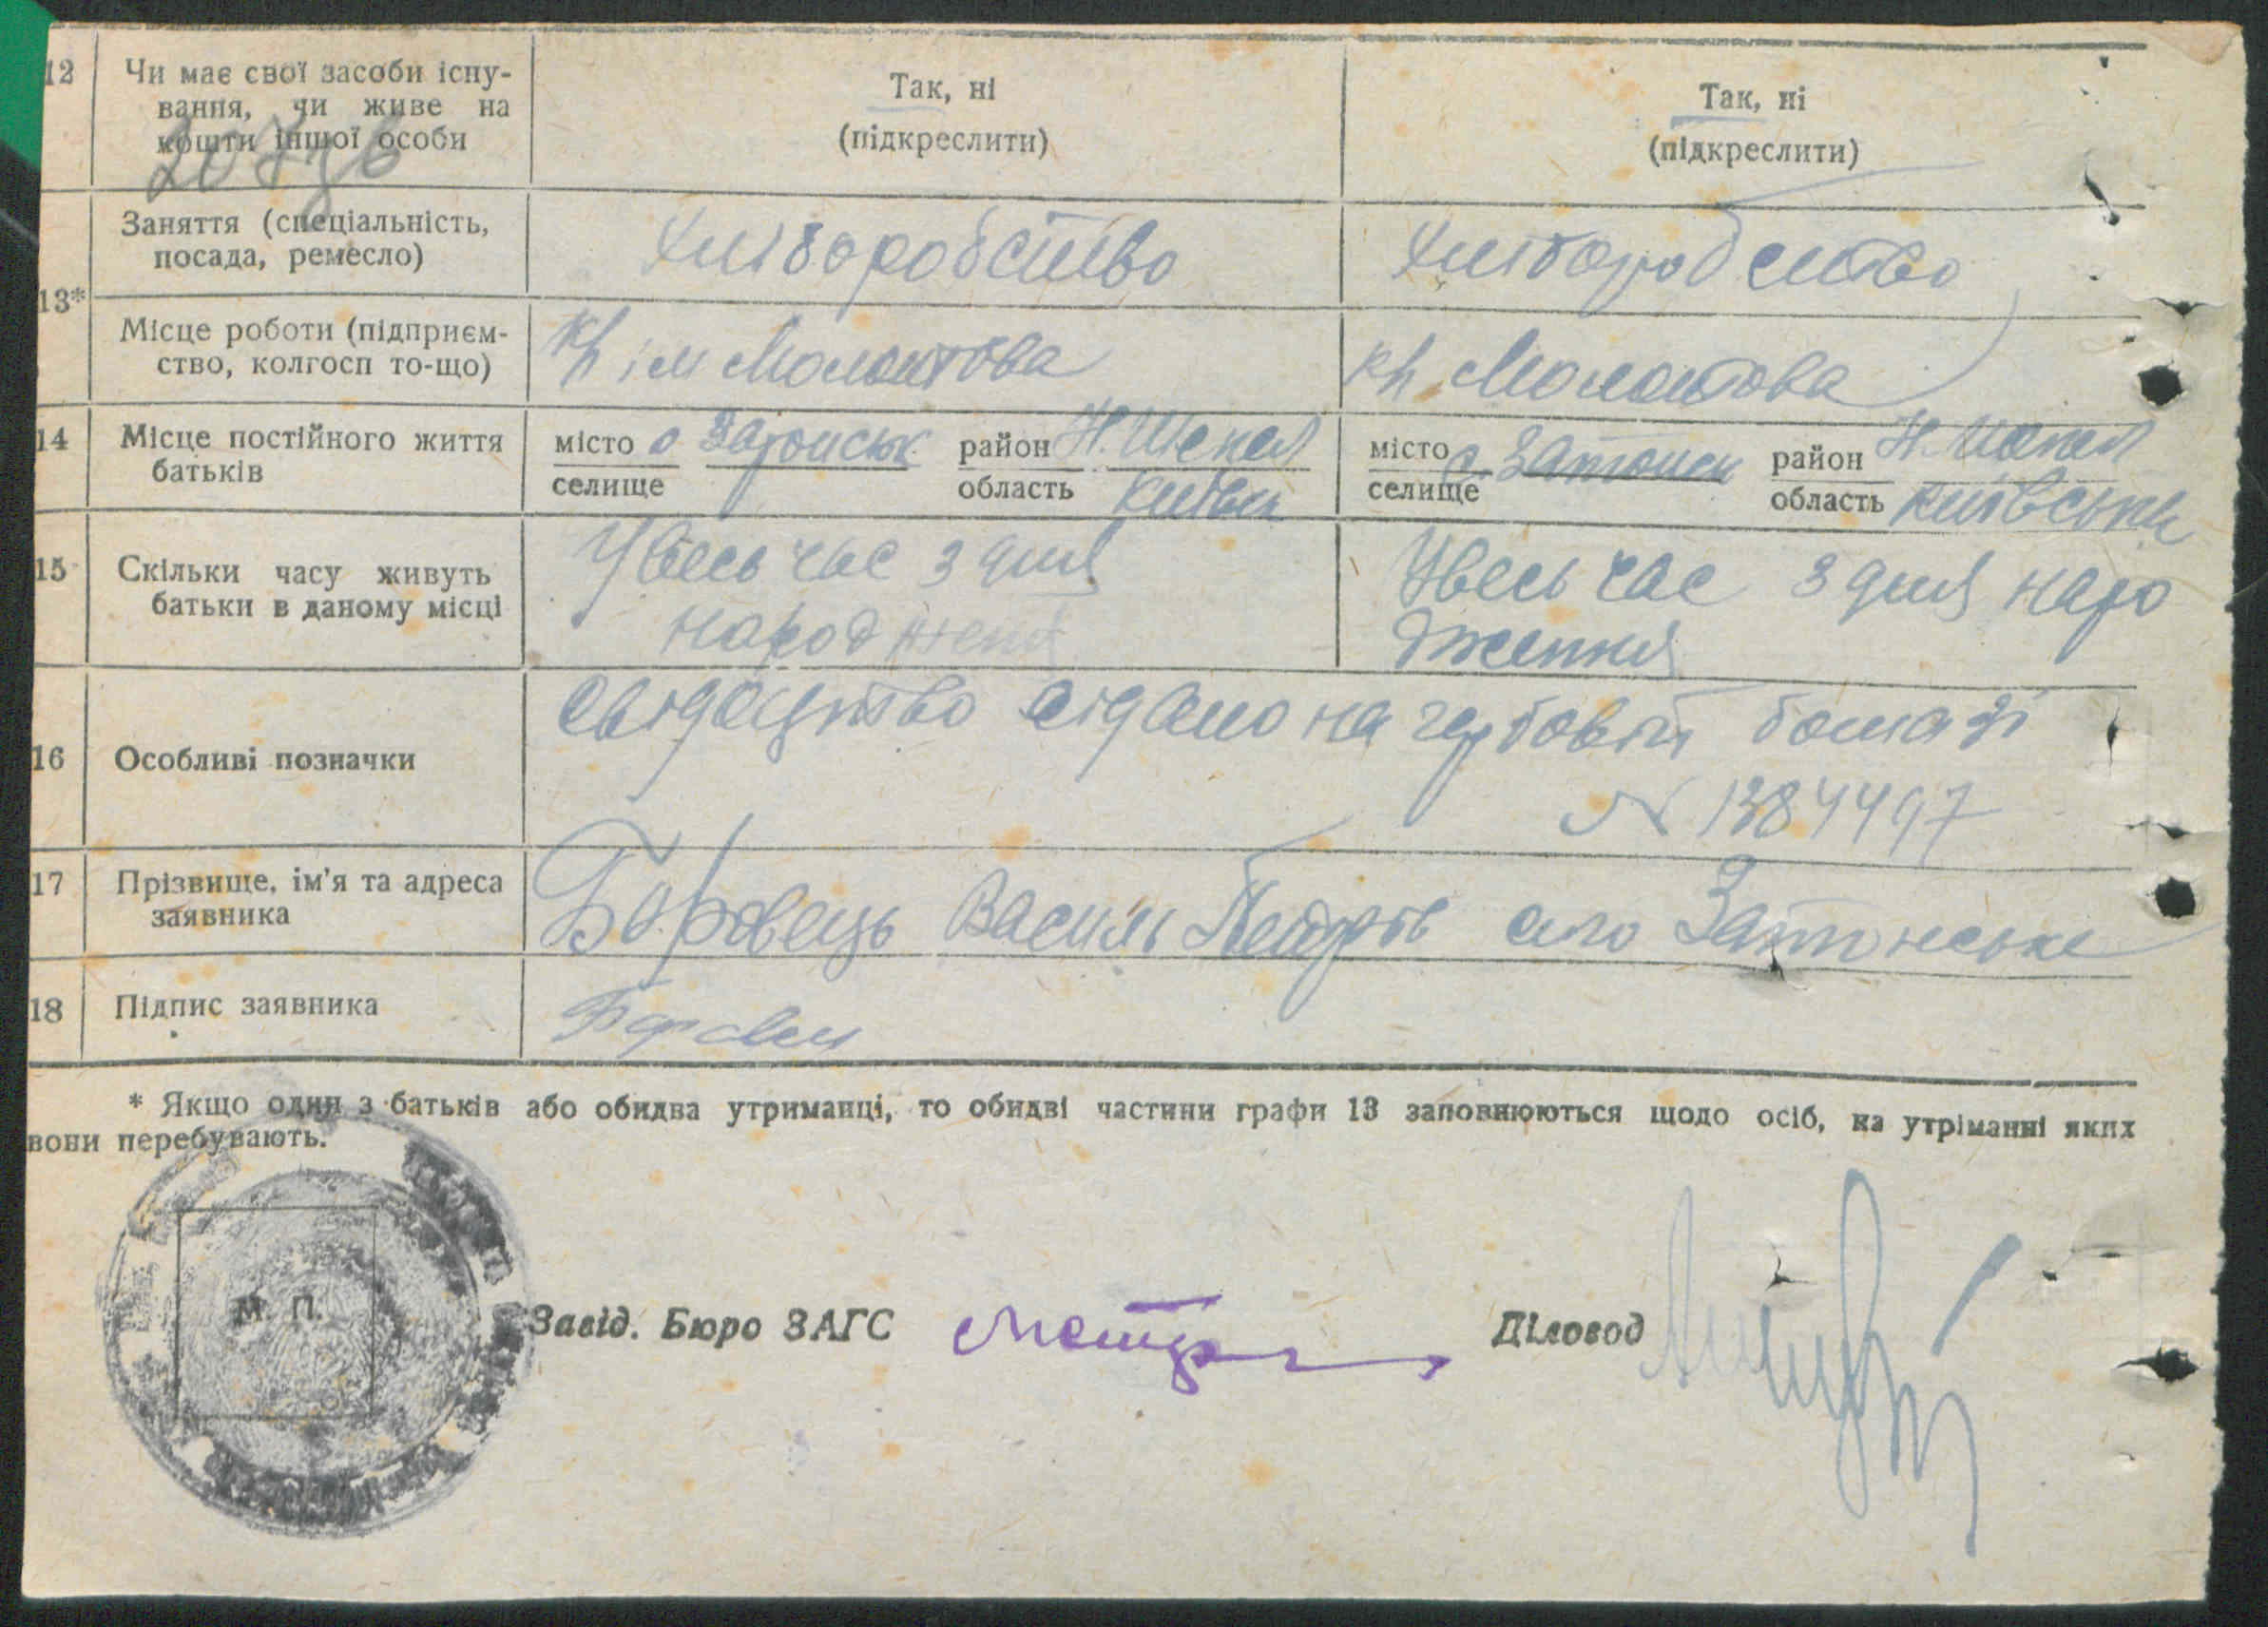 12 Чи має свої засоби існу-
вання, чи живе на
кошти іншої особи
Так, ні
(підкреслити)
Так, ні
(підкреслити)
13*
Заняття (спеціальність,
посада, ремесло)
хліборобство
хліборобство
Місце роботи (підприєм-
ство, колгосп то-що)
ім Молотова
Молотова
14 Місце постійного життя
батьків
місто
селище
район
область Київськ
місто
селище
район
область Київська
15 Скільки часу живуть
батьки в даному місці
Увесь час з дня
народження
Увесь час з дня наро
дження
16 Особливі позначки
на гербовій бомазі
N 1384497
17 Прізвище, ім'я та адреса
заявника
Боровець Василь Петров село Затонське
18 Підпис заявника
* Якщо один з батьків або обидва утриманці, то обидві частини графи 13 заповнюються щодо осіб, на утріманні яких
вони перебувають.
М. П.
Завід. Бюро ЗАГС
Діловод